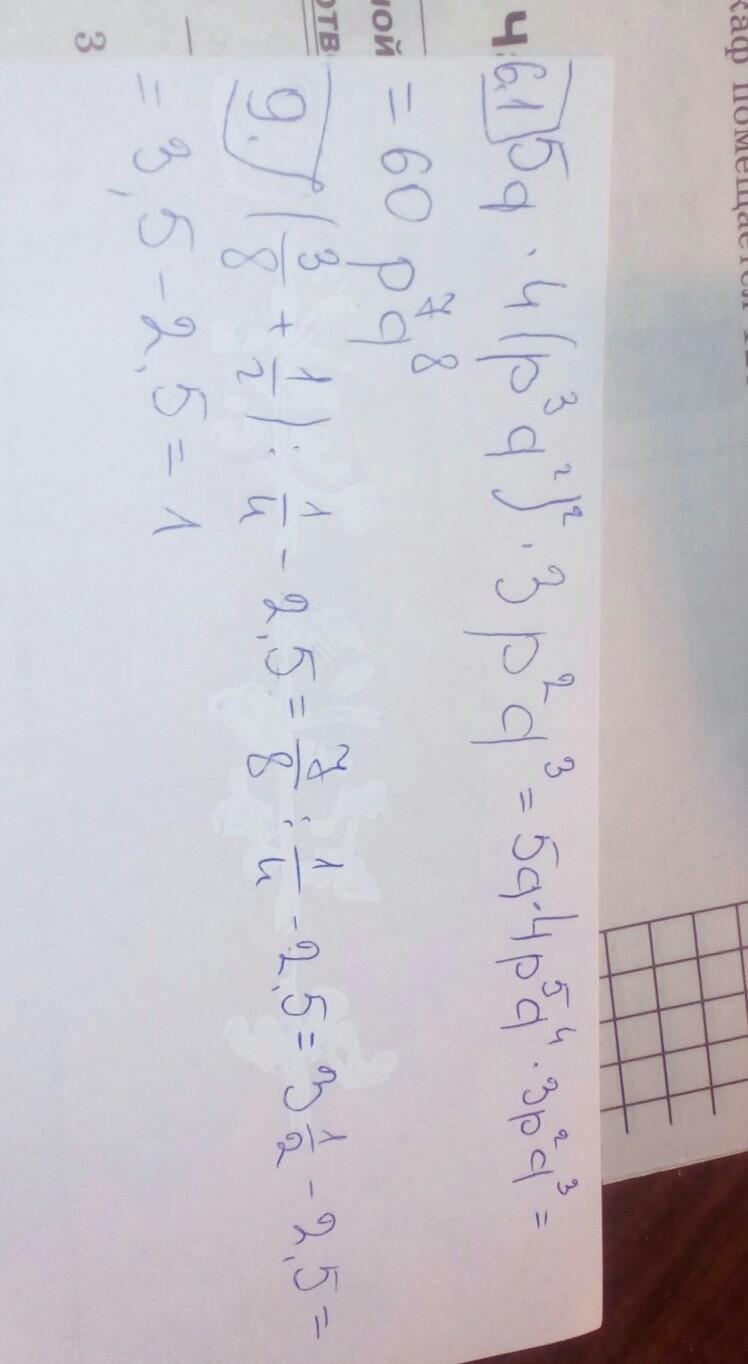 каф помещается
4
6.1 5q · 4(p³q²)² · 3p²q³ = 5q·4p⁵q⁴ · 3p²q³ =
ной = 60 p⁷q⁸
отв
9. (3/8 + 1/2) : 1/4 - 2,5 = 7/8 : 1/4 - 2,5 = 3 1/2 - 2,5 =
= 3,5 - 2,5 = 1
3